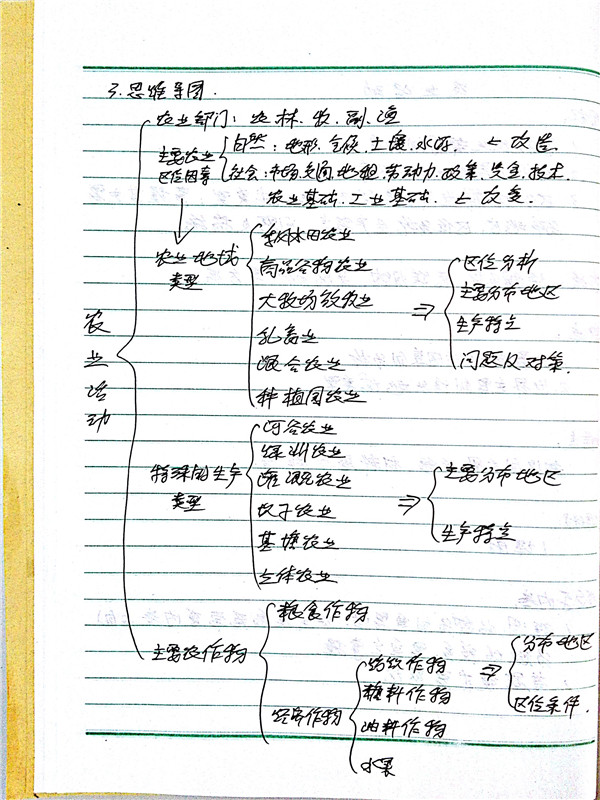 3.思维导图.
农业部门：农.林.牧.副.渔
主要农业
区位因素
自然：地形.气候.土壤.水源. ← 改造
社会：市场.交通.地租.劳动力.政策.资金.技术.
农业基础.工业基础. ← 改变.
农业地域
类型
季风水田农业
商品谷物农业
大牧场放牧业
乳畜业
混合农业
种植园农业
⇒
区位分析
主要分布地区
生产特点
问题及对策.
农业活动
特殊的生产
类型
河谷农业
绿洲农业
灌溉农业
坝子农业
基塘农业
立体农业
⇒
主要分布地区
生产特点
主要农作物
粮食作物
经济作物
纺织作物
糖料作物
油料作物
水果
⇒
分布地区
区位条件.